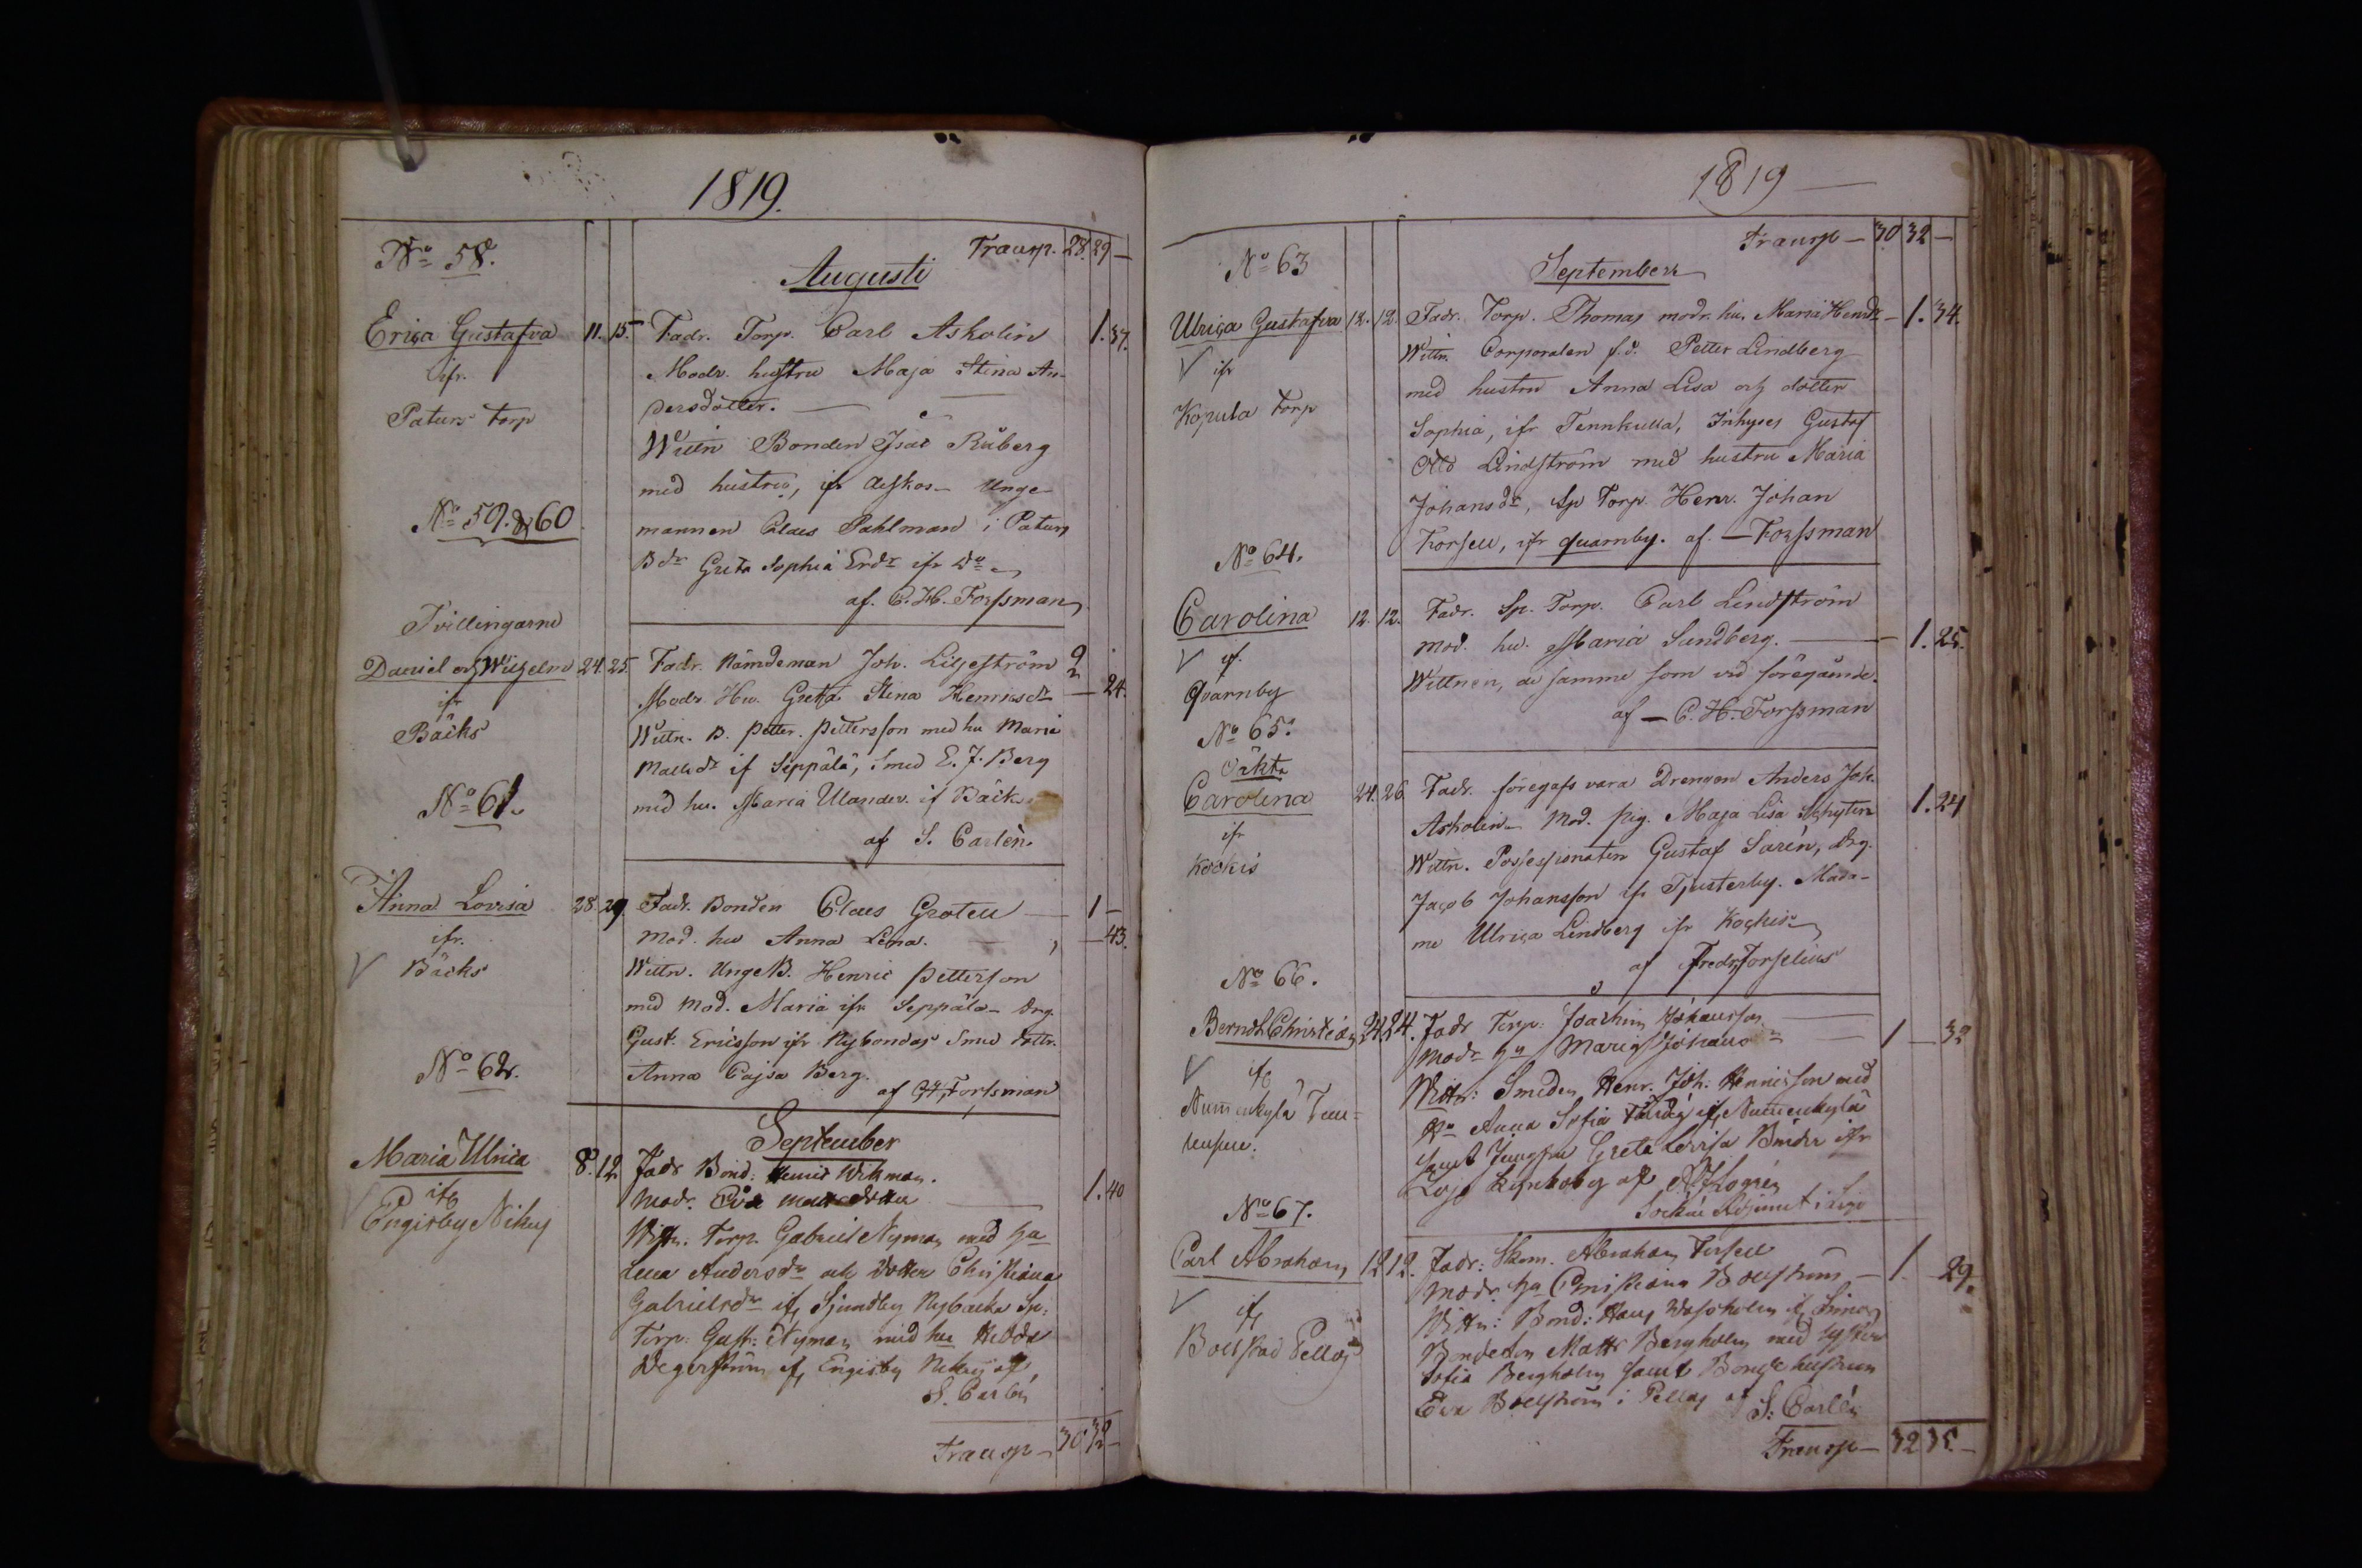 1819.
Transp. 28. 29 —
No 58.
Augusti
Erica Gustafva 11. 15. Fadr. Torp. Carl Askolin 1. 37.
ifr. Modr. hustru Maja Stina An-
Paturs Torp dersdotter. —
Wittn Bonden Isac Råberg
med hustru, ifr Unge-
No 59. & 60 mannen Claes Pahlman i Paturs
Bdr Greta Sophia Erdr ifr Do
af. C. H. Forssman
Tvillingarne
Daniel och Wilhelm 24. 25. Fadr. Nämdeman Joh. Liljeström 2
ifr Modr. Hu. Greta Stina Henricsdr — 24.
Bäcks Wittn. B. Petter Pettersson med hu Maria
Mattsdr if Seppälä, Smed E. J. Berg
No 61. med hu. Maria Ulander. if Bäcks
af S. Carlén.
Anna Lovisa 28. 29. Fadr. Bonden Claes Grotell — 1 —
ifr. Mod. hu Anna Lena. — 43.
Bäcks Wittn. Unge B. Henric Petterson
med Mod. Maria ifr Seppälä — Drg.
Gust. Ericsson ifr Nybondas Smed dottr.
No 62. Anna Cajsa Berg.
af CH. Forssman
September
Maria Ulrica 8. 12. Fadr Bond: Henric Wikman.
ifr Modr. Eva Mattsdotter — 1. 40
Engisby Nikus Wittn. Torp. Gabriel Nyman med Ha
Lena Andersdr och Dotter Christiana
Gabrielsdr ifr Sjundby Nybacka Sp:
Torp: Gust: Nyman med hu Hedda
Degerström ifr Engisby Nikus af
S. Carlén
Transp — 30 32 —
1819 —
Transp — 30 32 —
No 63
September
Ulrica Gustafva 12. 12. Fadr. Torp. Thomas modr. hu. Maria Henrdr — 1. 34.
ifr Wittn. Corporalen f.d. Petter Lindberg
Kopula Torp med hustru Anna Lisa och dotter
Sophia, ifr Tennkulla, Inhyses Gustaf
Otto Lindström med hustru Maria
Johansdr, Sp Torp. Henr. Johan
No 64. Forsell, ifr Quarnby. af — Forssman
Carolina 12. 12. Fadr. Sp. Torp. Carl Lindström
if. Mod. hu. Maria Sundberg. — 1. 25.
Qvarnby Wittnen, de samme som vid föregående.
af — C. H. Forssman
No 65.
Oäkta
Carolina 24. 26 Fadr. föregafs vara Drengen Anders Joh. 1. 24
ifr Askolin — Mod. pig. Maja Lisa Schytin
Kockis Wittn. Possessionaten Gustaf Sarén, drg.
Jacob Johansson ifr Tjusterby. Mada-
me Ulrica Lindberg ifr Kockis
af Fredr. Forselius
No 66.
Berndt Christian 24. 24. Fadr Torp: Joachim Johansson —
ifr Modr Hu Maria Johansdr — 1 — 32
Nummenkylä Wittn: Smeden Henr. Joh: Henricsson med
Hu Anna Sofia ifr Nummenkylä
samt Jungfru Greta Lovisa ifr
Lojo Kyrkoby af
Sockne Adjunct i Lojo
No 67.
Carl Abraham 12 12. Fadr: Skom. Abraham Forsell
ifr Modr. Ha Christiana Bollström — 1. 29.
Bollstad Pellas Wittn: Bond: Hans ifr
Bondeson Matts Bergholm med Syster
Sofia Bergholm samt Bonde hustrun
Eva Bollström i Pellas af S: Carlén
Transp — 32 35. —